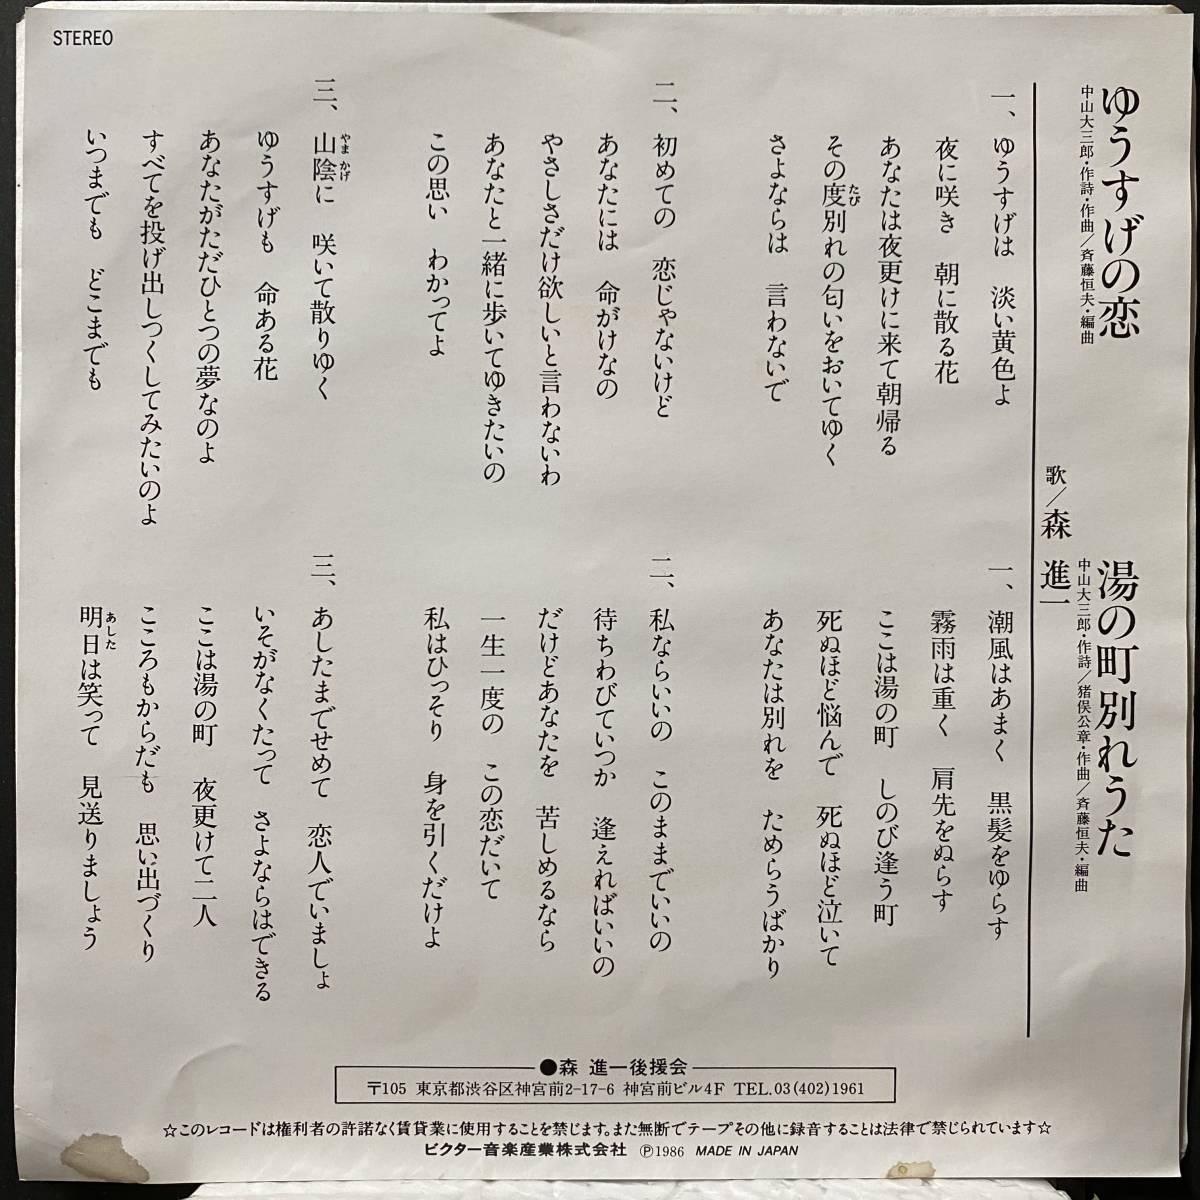 STEREO
ゆうすげの恋
中山大三郎・作詩・作曲／斉藤恒夫・編曲
湯の町別れうた
中山大三郎・作詩／猪俣公章・作曲／斉藤恒夫・編曲
歌／森 進一
一、ゆうすげは 淡い黄色よ
夜に咲き 朝に散る花
あなたは夜更けに来て朝帰る
その度別れの匂いをおいてゆく
たび
さよならは 言わないで
二、初めての 恋じゃないけど
あなたには 命がけなの
やさしさだけ欲しいと言わないわ
あなたと一緒に歩いてゆきたいの
この思い わかってよ
三、山陰に 咲いて散りゆく
やま かげ
ゆうすげも 命ある花
あなたがただひとつの夢なのよ
すべてを投げ出しつくしてみたいのよ
いつまでも どこまでも
一、潮風はあまく 黒髪をゆらす
霧雨は重く 肩先をぬらす
ここは湯の町 しのび逢う町
死ぬほど悩んで 死ぬほど泣いて
あなたは別れを ためらうばかり
二、私ならいいの このままでいいの
待ちわびていつか 逢えればいいの
だけどあなたを 苦しめるなら
一生一度の この恋だいて
私はひっそり 身を引くだけよ
三、あしたまでせめて 恋人でいましょ
いそがなくたって さよならはできる
ここは湯の町 夜更けて二人
こころもからだも 思い出づくり
明日は笑って 見送りましょう
あした
●森 進一後援会
〒105 東京都渋谷区神宮前2-17-6 神宮前ビル4F TEL.03(402)1961
☆このレコードは権利者の許諾なく賃貸業に使用することを禁じます。また無断でテープその他に録音することは法律で禁じられています☆
ビクター音楽産業株式会社 Ⓟ1986 MADE IN JAPAN